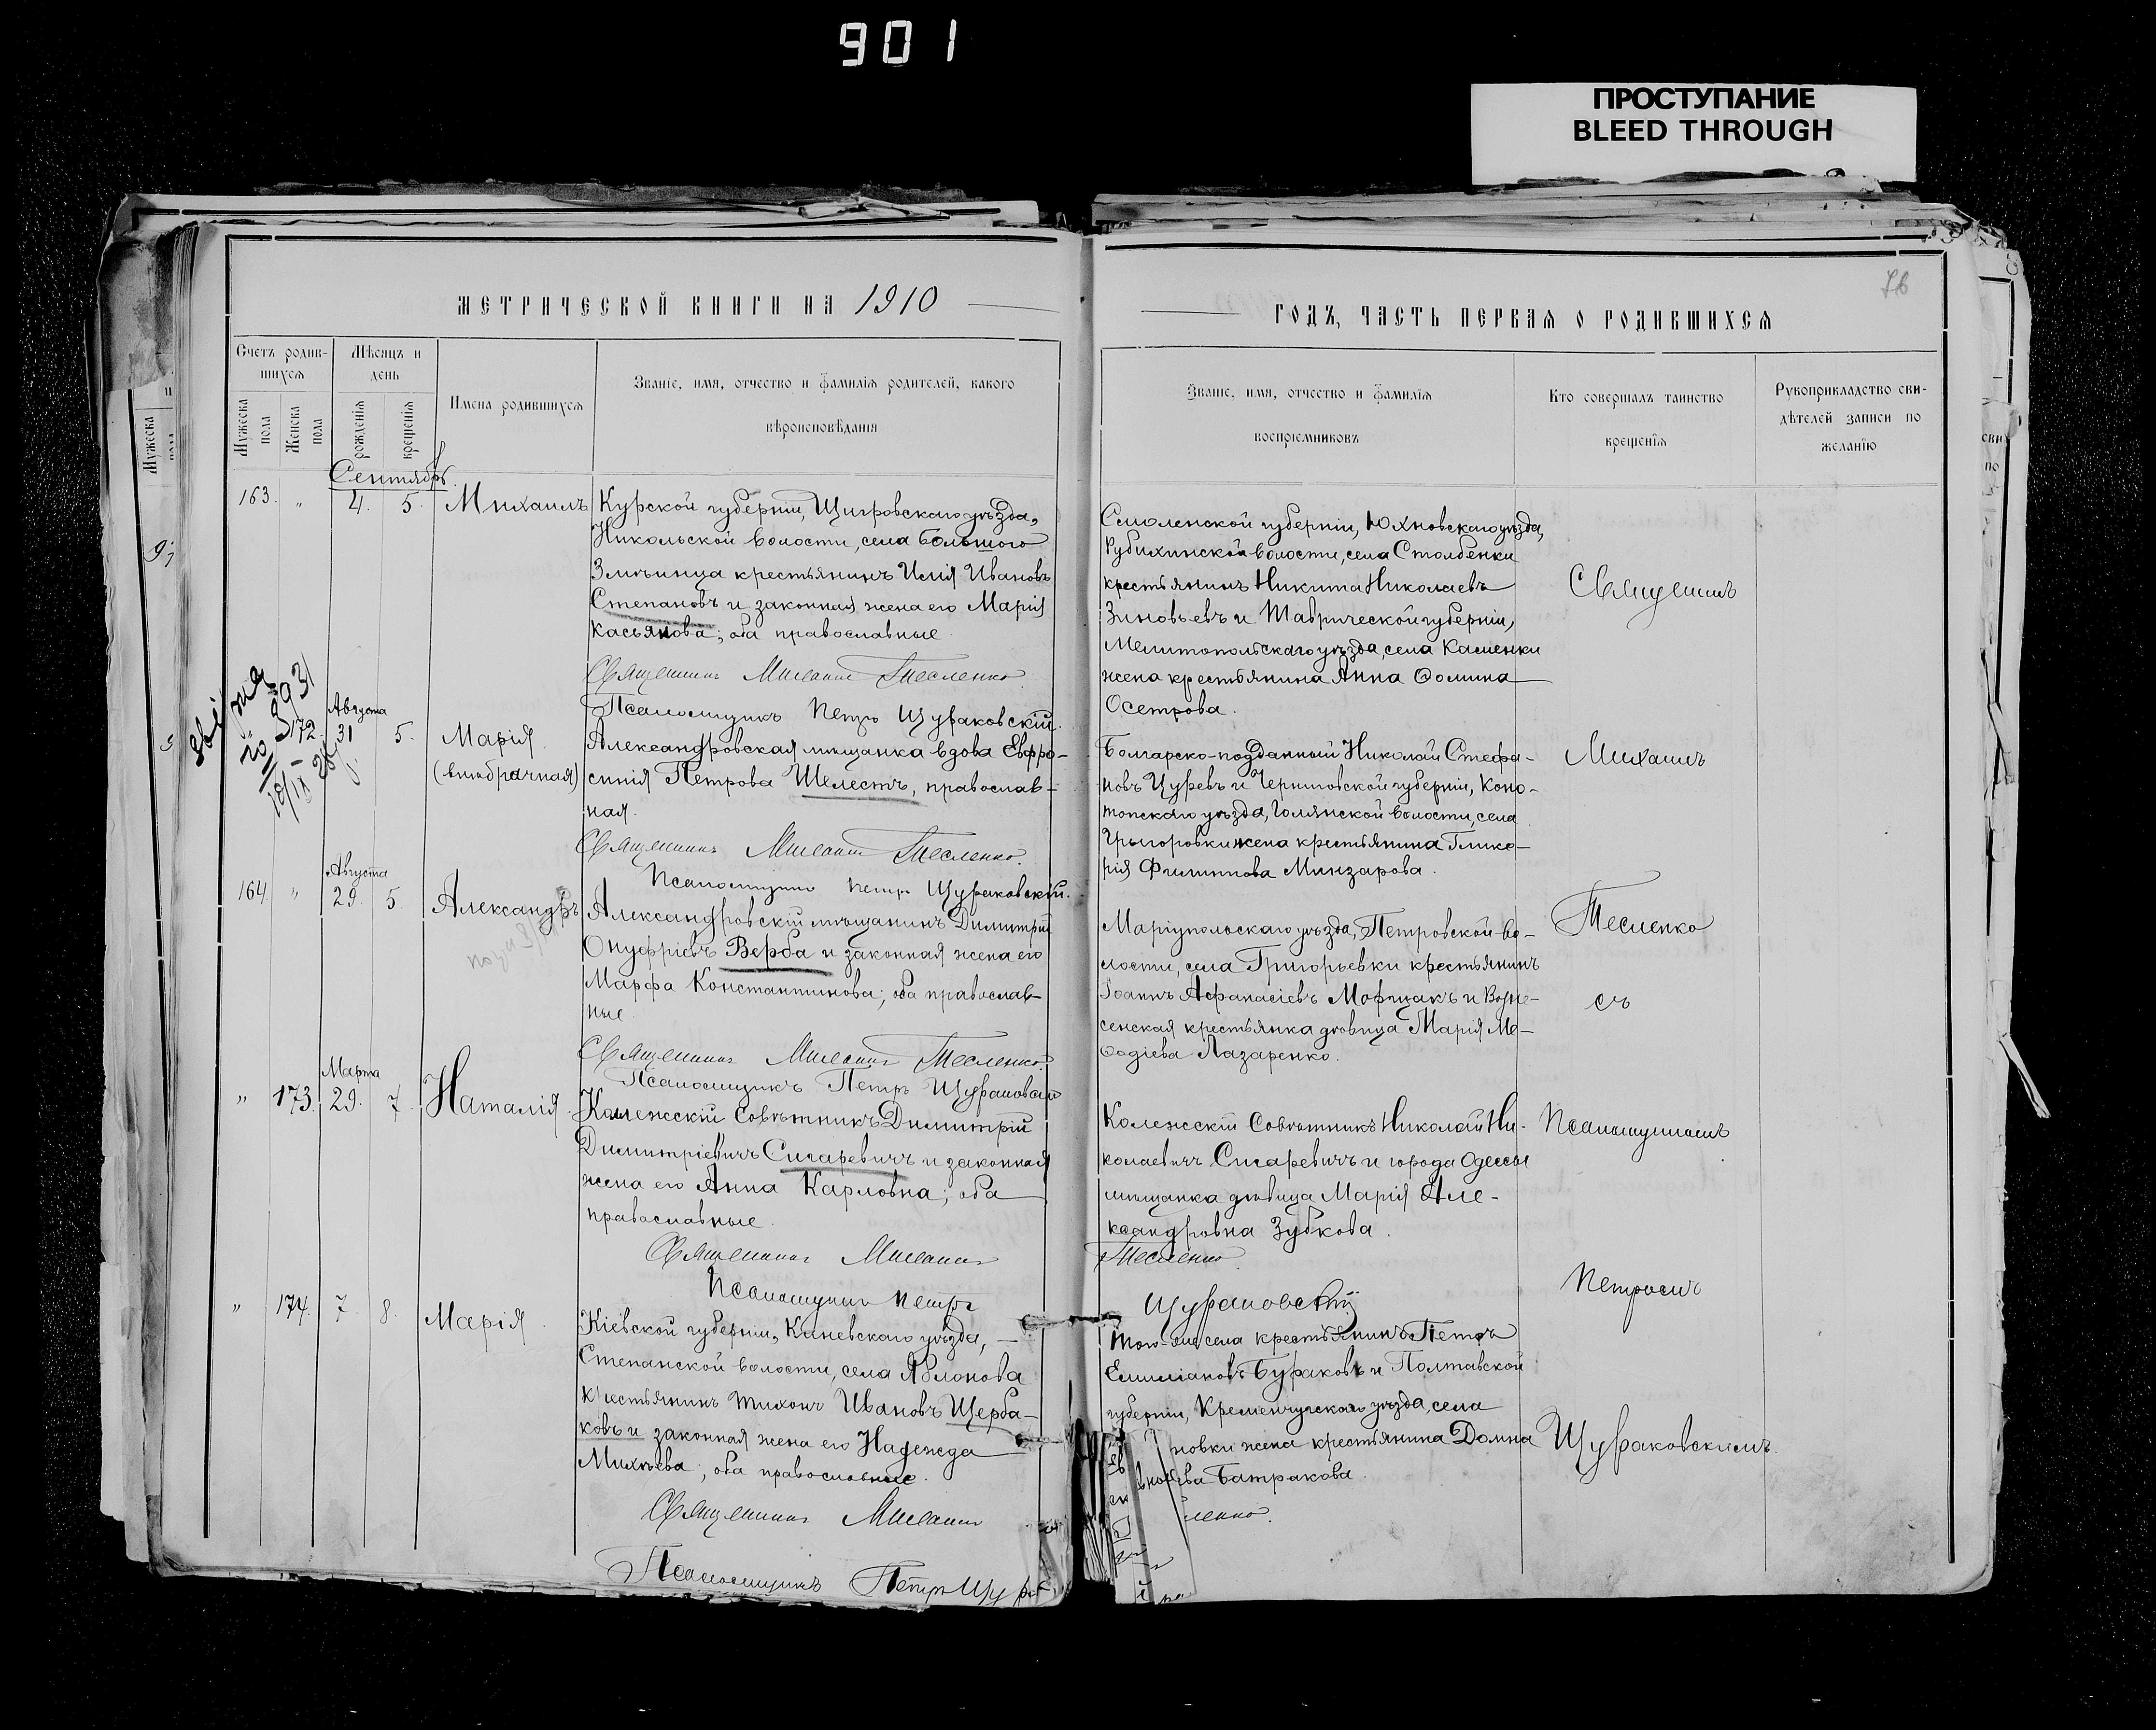 901
ПРОСТУПАНИЕ
BLEED THROUGH
76
МЕТРИЧЕСКОЙ КНИГИ НА 1910
ГОДЪ, ЧАСТЬ ПЕРВАЯ О РОДИВШИХСЯ
Счетъ родив-
шихся
Мужеска пола
Женска пола
Мѣсяцъ и
день
рожденія
крещенія
Имена родившихся
Званіе, имя, отчество и фамилія родителей, какого
вѣроисповѣданія
Званіе, имя, отчество и фамилія
воспріемниковъ
Кто совершалъ таинство
крещенія
Рукоприкладство сви-
дѣтелей записи по
желанію
Сентябрь
163. " 4. 5. Михаилъ
Курской губерніи, Щигровскаго уѣзда,
Никольской волости, села Большого
Змѣинца крестьянинъ Илія Ивановъ
Степановъ и законная жена его Марія
Касьянова; оба православные.
Священникъ Михаилъ Тесленко.
Псаломщикъ Петръ Щураковскій.
Смоленской губерніи, Юхновскаго уѣзда,
Рубихинской волости, села Столбенки
крестьянинъ Никита Николаевъ
Зиновьевъ и Таврической губерніи,
Мелитопольскаго уѣзда, села Каменки
жена крестьянина Анна Ѳомина
Осетрова.
Священникъ
Августа
172. 31 5. Марія
(внѣбрачная)
Александровская мѣщанка вдова Евфро-
синія Петрова Шелестъ, православ-
ная.
Священникъ Михаилъ Тесленко.
Псаломщикъ Петръ Щураковскій.
Болгарско-подданный Николай Стефа-
новъ Цуревъ и Черниговской губерніи, Коно-
топскаго уѣзда, Голянской волости, села
Григоровки жена крестьянина Глике-
рія Филиппова Минзарова.
Михаилъ
Августа
164. " 29. 5. Александръ
Александровскій мѣщанинъ Димитрій
Онуфріевъ Верба и законная жена его
Марфа Константинова; оба православ-
ные.
Священникъ Михаилъ Тесленко.
Псаломщикъ Петръ Щураковскій
Маріупольскаго уѣзда, Петровской во-
лости, села Григорьевки крестьянинъ
Іоаннъ Аѳанасіевъ Моршакъ и Возне-
сенская крестьянка дѣвица Марія Ме-
ѳодіева Лазаренко.
Тесленко
съ
Марта
" 173. 29. 7. Наталія.
Колежскій Совѣтникъ Димитрій
Димитріевичъ Сигаревичъ и законная
жена его Анна Карловна; оба
православные.
Священникъ Михаилъ
Псаломщикъ Петръ
Колежскій Совѣтникъ Николай Ни-
колаевичъ Сигаревичъ и города Одессы
мѣщанка дѣвица Марія Але-
ксандровна Зубкова.
Тесленко
Щураковскій
Псаломщикомъ
Петромъ
" 174. 7. 8. Марія.
Кіевской губерніи, Каневскаго уѣзда,
Степанской волости, села Яблонова
крестьянинъ Тихонъ Ивановъ Щерба-
ковъ и законная жена его Надежда
Михѣева; оба православные.
Священникъ Михаилъ
Псаломщикъ Петръ Щура
Того-же села крестьянинъ Петръ
Емиліановъ Бураковъ и Полтавской
губерніи, Кременчугскаго уѣзда, села
новки жена крестьянина Домна
Батракова.
ленко.
Щураковскимъ.